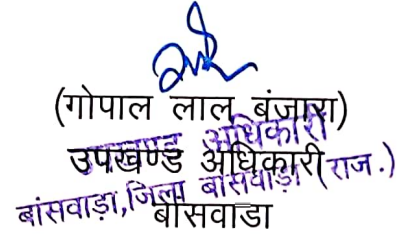 (गोपाल लाल बंजारा)
उपखण्ड अधिकारी
उपखण्ड अधिकारी
बांसवाड़ा,जिला बांसवाड़ा (राज.)
बांसवाडा